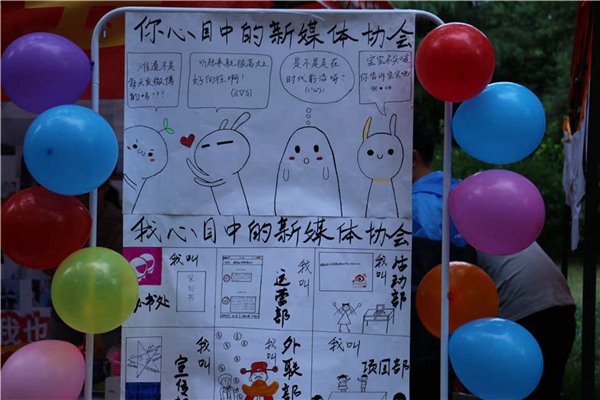 你心目中的新媒体协会
难道不是
每天发微博
的吗?!
听起来就很高大上
好向往啊!
是不是走在
时代前沿呀?
宝宝不知道
你告诉宝宝吧
我心目中的新媒体协会
我叫
秘书处
我叫
运营部
我叫
活动部
我叫
宣传
我叫
外联部
我叫
项目部
我也